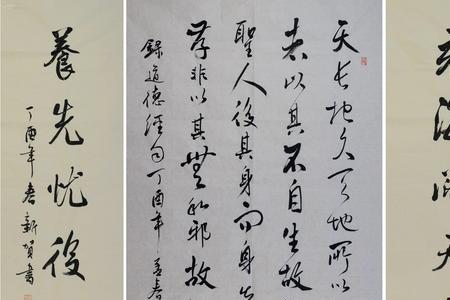 天長地久天地所以
者以其不自生故
聖人後其身而身
存非以其無私邪故
録道德經句丁酉年春
養先忧後
丁酉年春新賀書